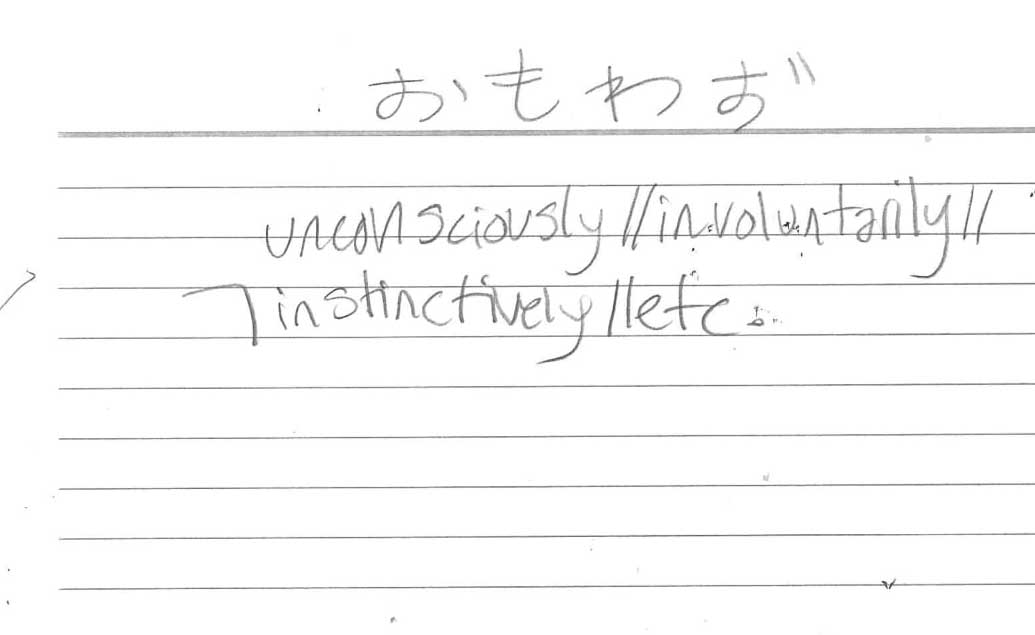 おもわず
unconsciously//involuntarily//
instinctively//etc.